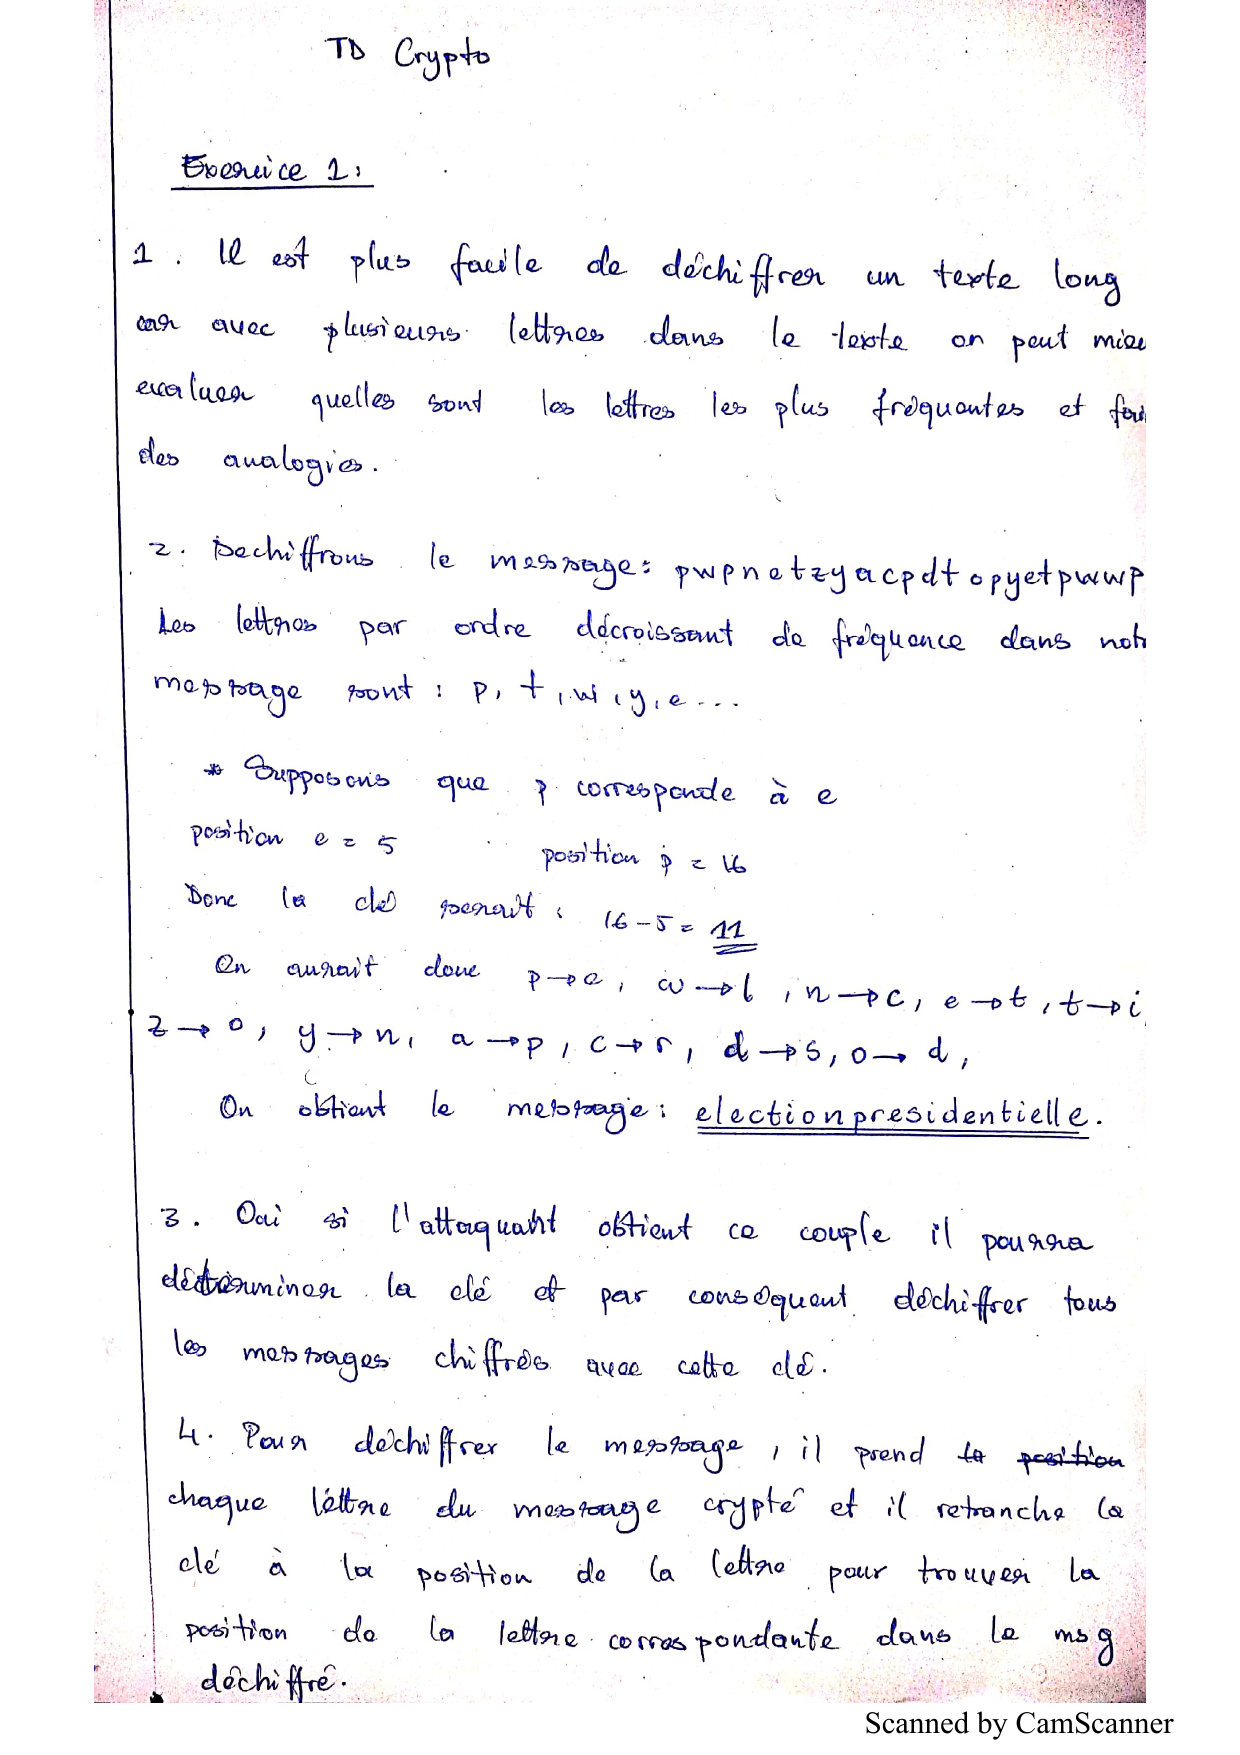 TD Crypto
Exercice 1:
1. Il est plus facile de déchiffrer un texte long
car avec plusieurs lettres dans le texte on peut mieu
evaluer quelles sont les lettres les plus fréquentes et fai
des analogies.
2. Dechiffrons le message: pwpnetzyacpdtopyetpwwp
Les lettres par ordre décroissant de fréquence dans notr
message sont : p, t, w, y, e...
* Supposons que p corresponde à e
position e = 5 position p = 16
Donc la clé serait : 16-5 = 11
On aurait donc p→e, w→l, n→c, e→t, t→i
z→o, y→n, a→p, c→r, d→s, o→d,
On obtient le message: electionpresidentielle.
3. Oui si l'attaquant obtient ce couple il pourra
déterminer la clé et par conséquent déchiffrer tous
les messages chiffrés avec cette clé.
4. Pour déchiffrer le message, il prend la position
chaque lettre du message crypté et il retranche la
clé à la position de la lettre pour trouver la
position de la lettre correspondante dans le msg
déchiffré.
Scanned by CamScanner